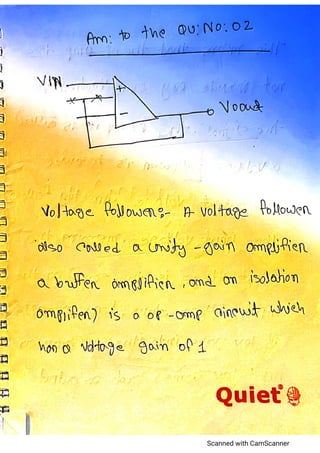 Ans: to the QU: NO: 02
VIN
+
-
Voout
Voltage followers:- A voltage follower
also called a unity-gain amplifier
a buffer amplifier, and an isolation
amplifier) is a op-amp circuit which
has a voltage gain of 1
Quiet
Scanned with CamScanner